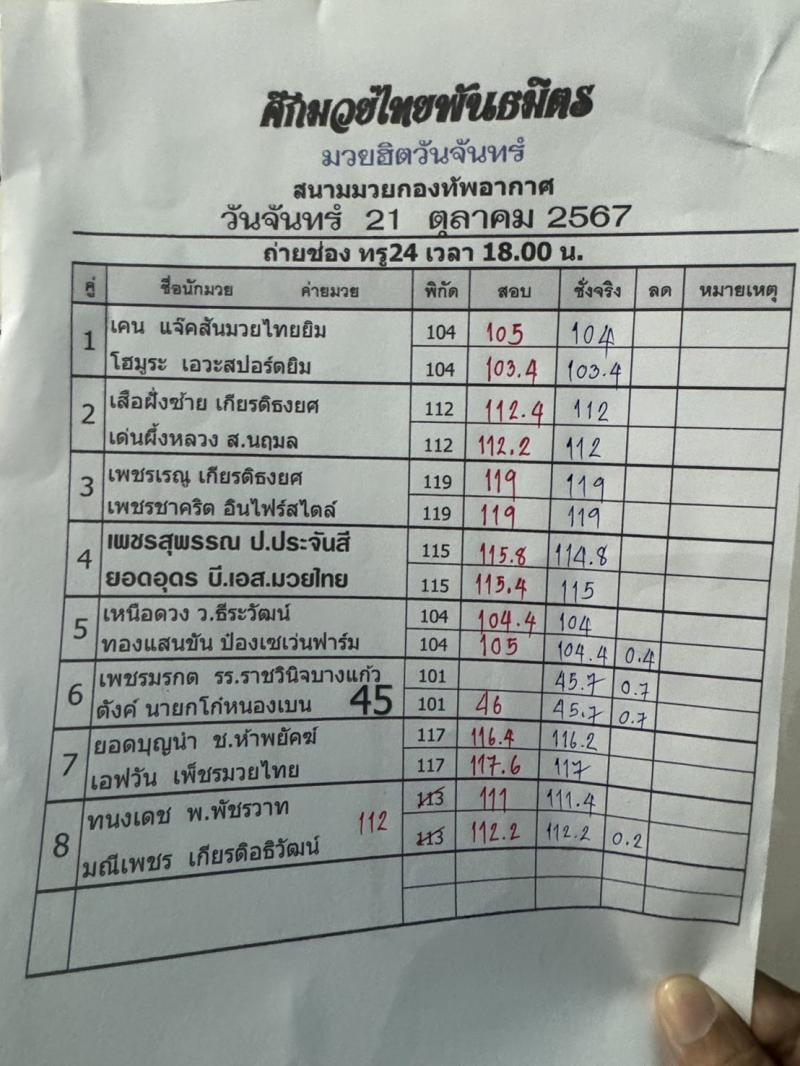 ศึกมวยไทยพันธมิตร
มวยฮิตวันจันทร์
สนามมวยกองทัพอากาศ
วันจันทร์ 21 ตุลาคม 2567
ถ่ายช่อง ทรู24 เวลา 18.00 น.
คู่ ชื่อนักมวย ค่ายมวย พิกัด สอบ ชั่งจริง ลด หมายเหตุ
1 เคน แจ๊คสันมวยไทยยิม 104 105 104
โฮมูระ เอวะสปอร์ตยิม 104 103.4 103.4
2 เสือฝั่งซ้าย เกียรติธงยศ 112 112.4 112
เด่นผึ้งหลวง ส.นฤมล 112 112.2 112
3 เพชรเรณู เกียรติธงยศ 119 119 119
เพชรชาคริต อินไฟร์สไตล์ 119 119 119
4 เพชรสุพรรณ ป.ประจันสี 115 115.8 114.8
ยอดอุดร บี.เอส.มวยไทย 115 115.4 115
5 เหนือดวง ว.ธีระวัฒน์ 104 104.4 104
ทองแสนขัน ป๋องเซเว่นฟาร์ม 104 105 104.4 0.4
6 เพชรมรกต รร.ราชวินิจบางแก้ว 101 45.7 0.7
ตังค์ นายกโก๋หนองเบน 45 101 46 45.7 0.7
7 ยอดบุญนำ ช.ห้าพยัคฆ์ 117 116.4 116.2
เอฟวัน เพ็ชรมวยไทย 117 117.6 117
8 ทนงเดช พ.พัชรวาท 112 113 111 111.4
มณีเพชร เกียรติอธิวัฒน์ 113 112.2 112.2 0.2